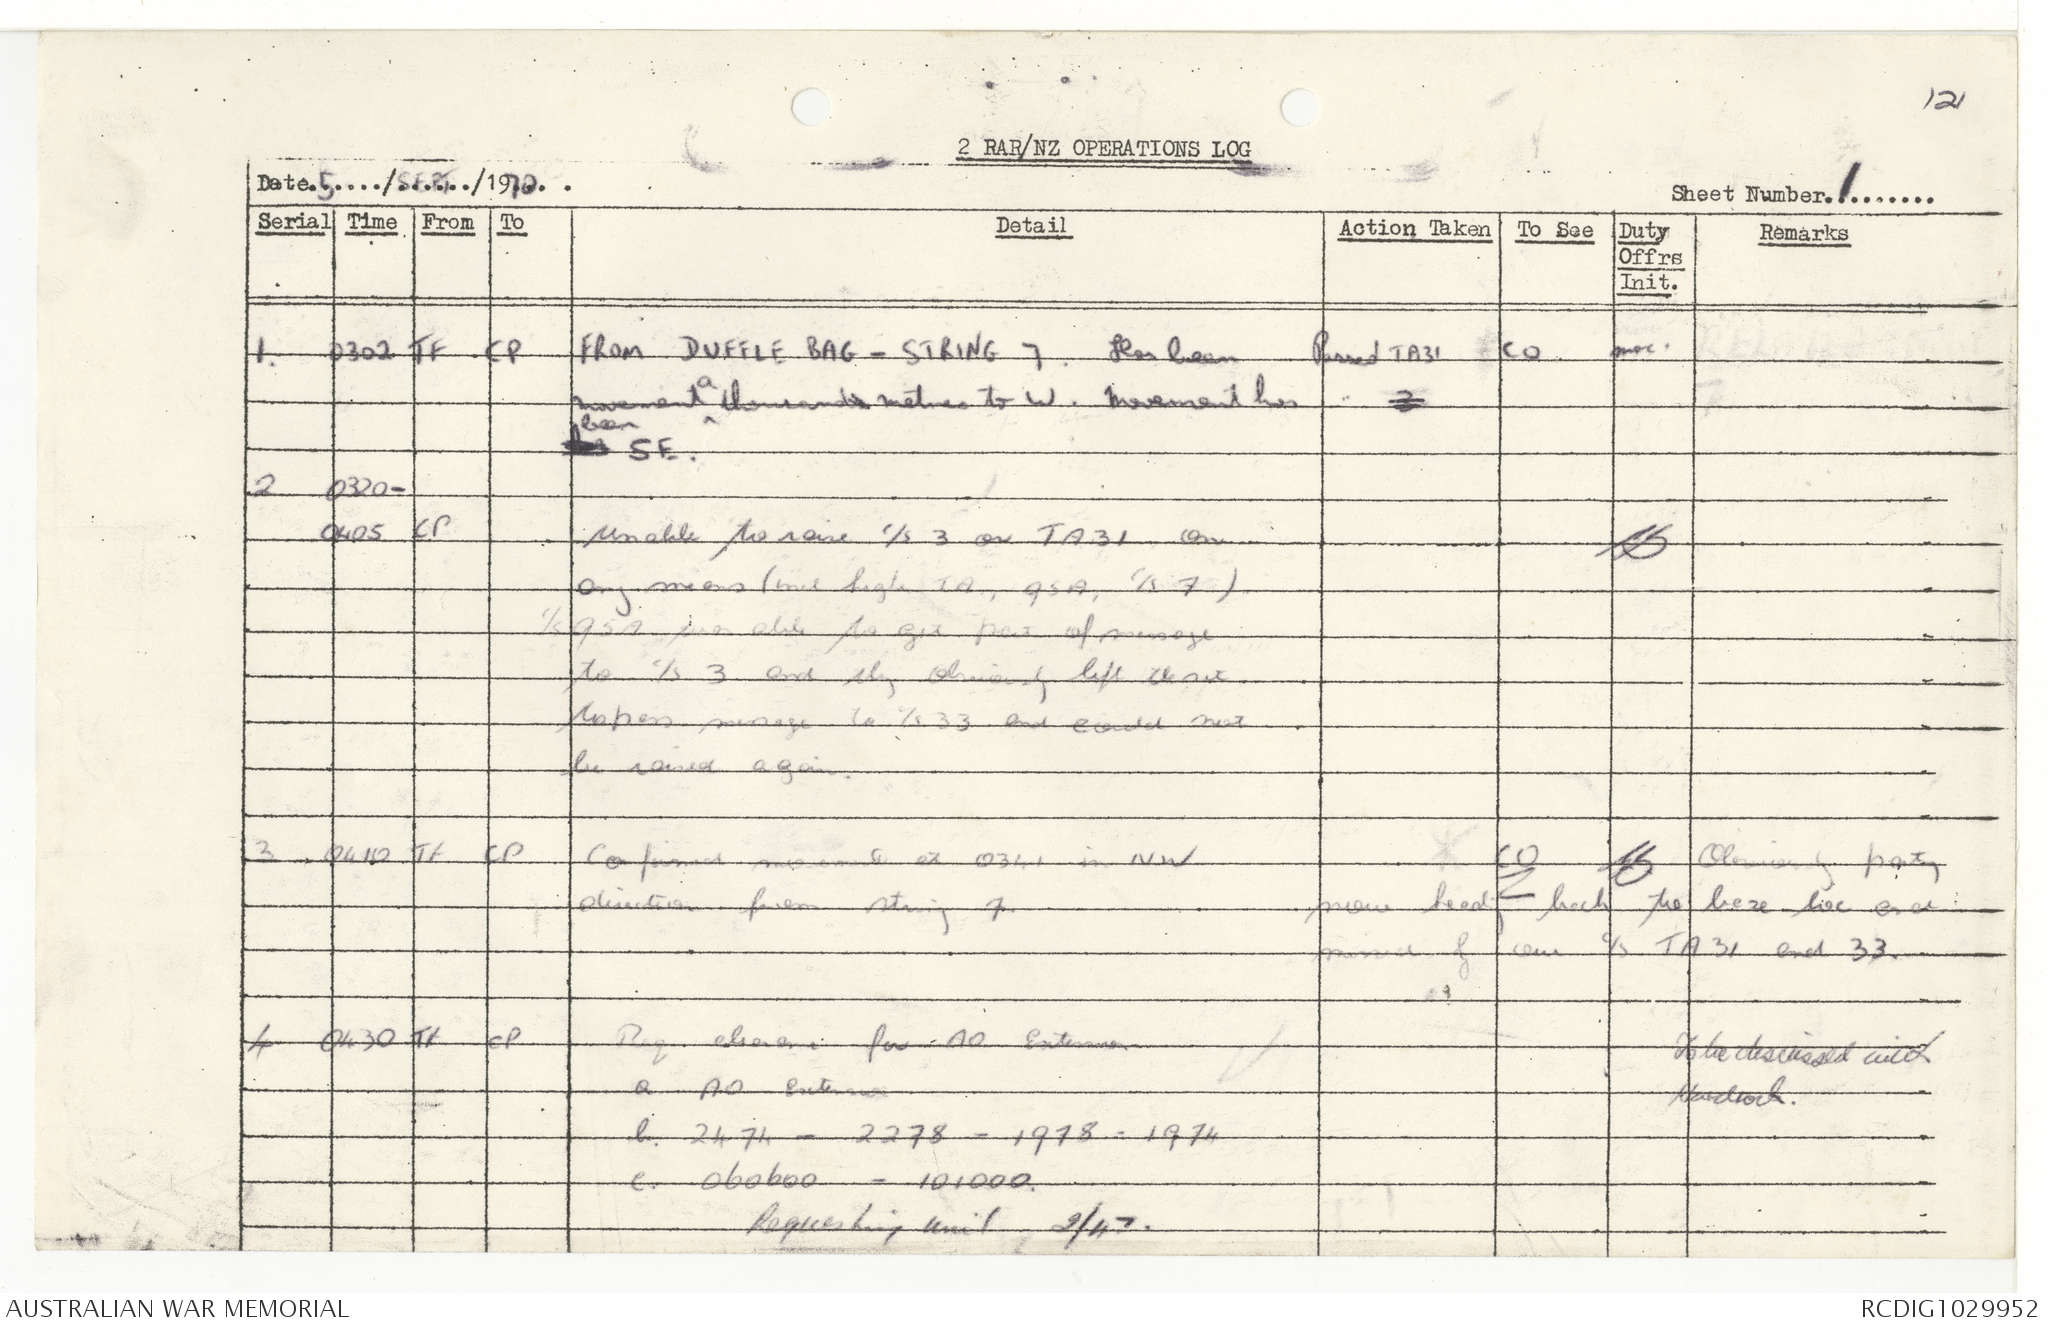 121
2 RAR/NZ OPERATIONS LOG
Date.5..../SEPT/1970. .
Sheet Number.1........
Serial Time From To Detail Action Taken To See Duty Offrs Init. Remarks
1. 0302 TF CP FROM DUFFLE BAG - STRING 7. Has been Passed TA31 CO
movement a thousand metres to W. Movement has " 3
been SE.
2 0320-
0405 CP Unable to raise c/s 3 or TA31 on
any means (incl high TA, 9SA, c/s 7)
c/s 9SA was able to get part of message
to c/s 3 and they obviously left the set
to pass message to c/s 33 and could not
be raised again.
3 0410 TF CP Confirmed movement at 0341 in NW CO Obviously party
direction from string 7. move back to base loc and
missed by our c/s TA31 and 33.
4 0430 TF CP Req clearance for AO Extension To be discussed with
a AO Extension
b. 2474 - 2278 - 1978 - 1974
c. 060600 - 101000.
Requesting Unit 2/47.
AUSTRALIAN WAR MEMORIAL
RCDIG1029952